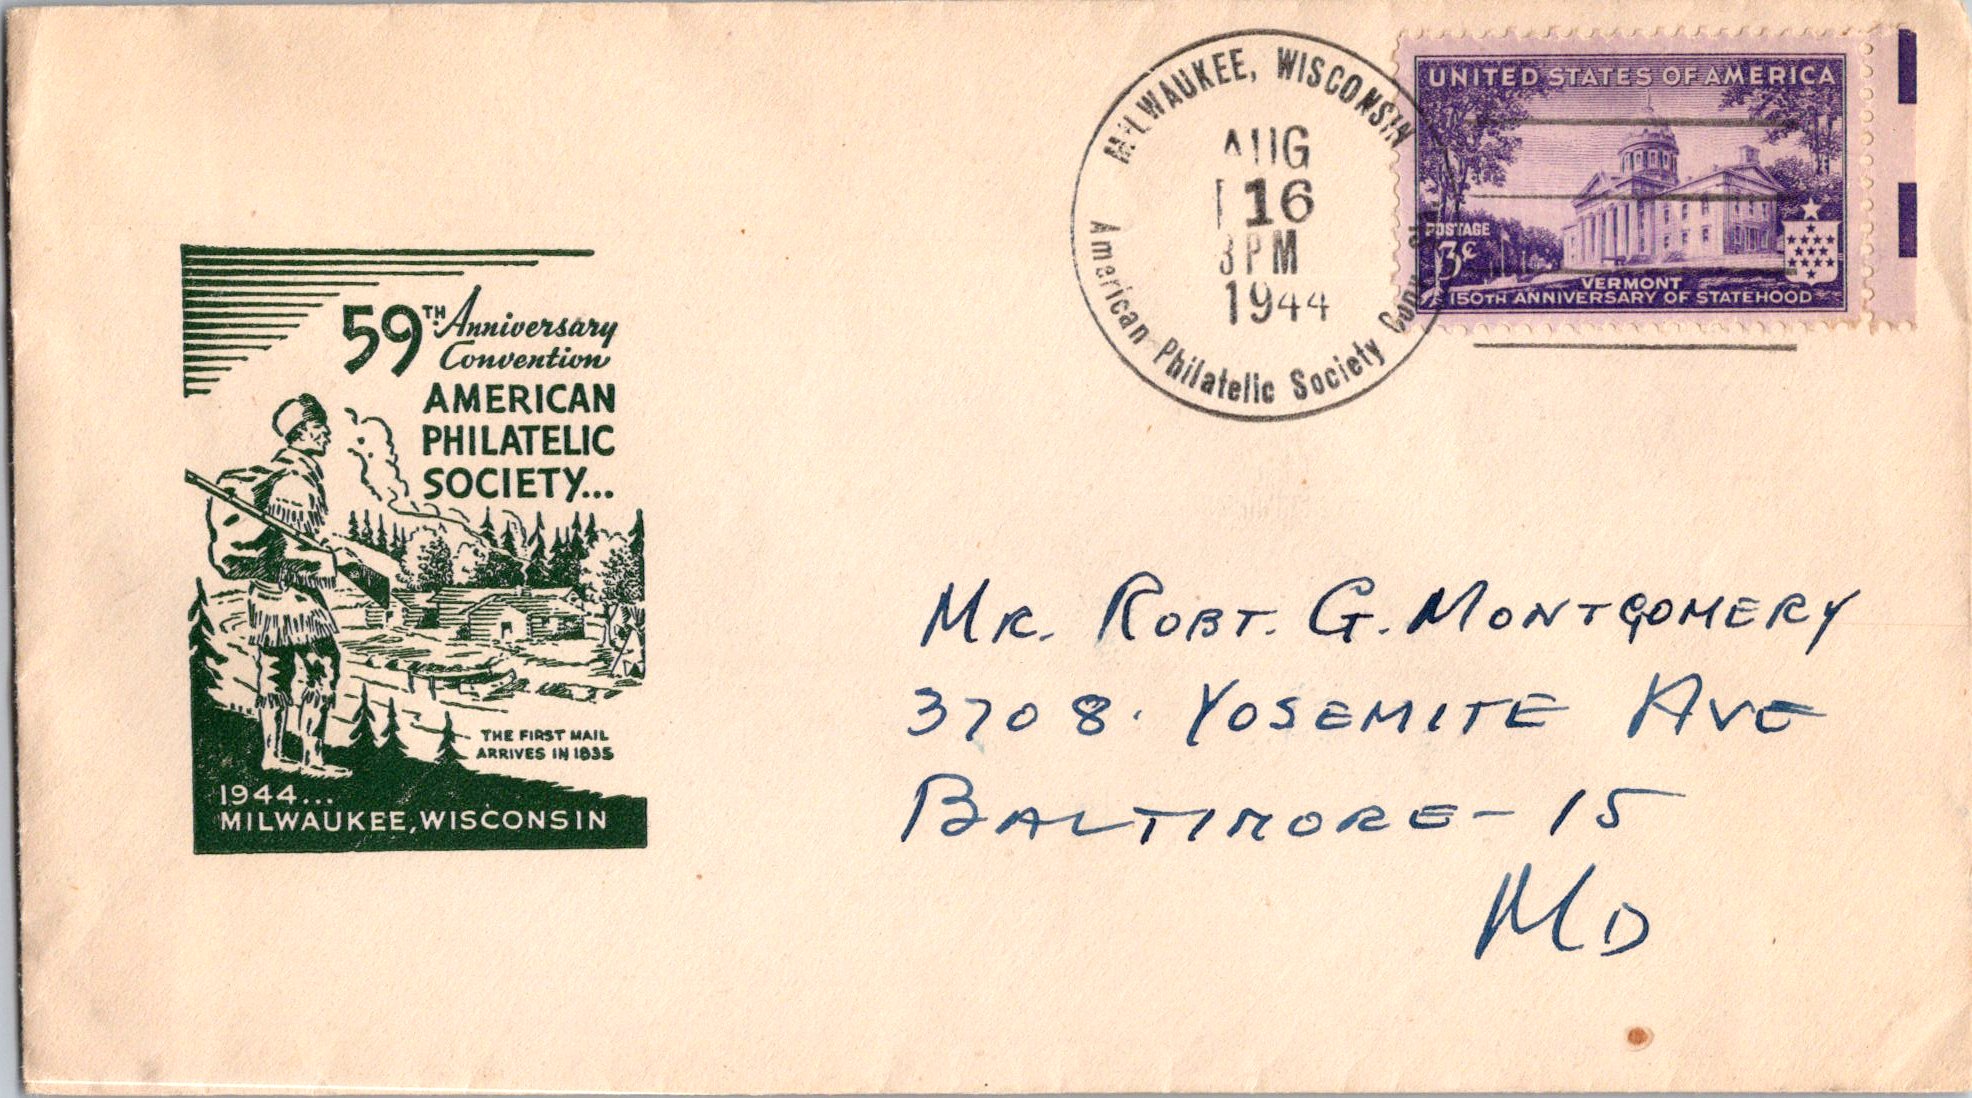 MILWAUKEE, WISCONSIN
AUG
16
3 PM
1944
American Philatelic Society
UNITED STATES OF AMERICA
POSTAGE
3¢
VERMONT
150TH ANNIVERSARY OF STATEHOOD
59TH Anniversary
Convention
AMERICAN
PHILATELIC
SOCIETY...
THE FIRST MAIL
ARRIVES IN 1835
1944...
MILWAUKEE, WISCONSIN
MR. ROBT. G. MONTGOMERY
3708. YOSEMITE AVE
BALTIMORE - 15
MD